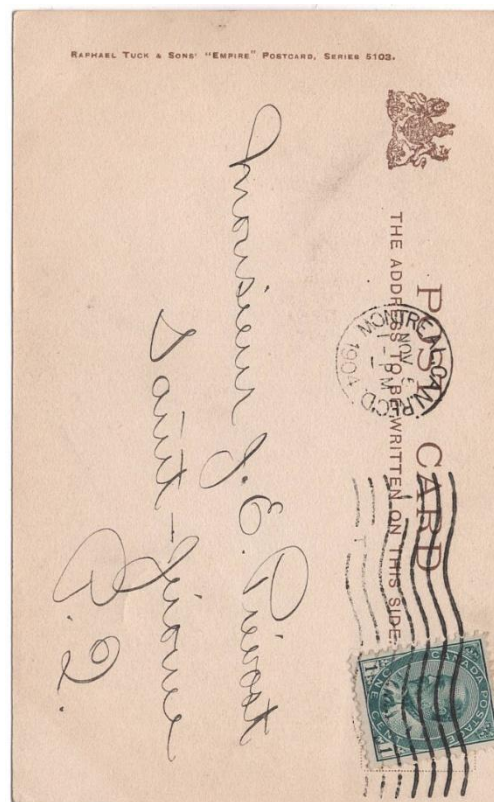 RAPHAEL TUCK & SONS' "EMPIRE" POSTCARD, SERIES 5103.
POST CARD
THE ADDRESS TO BE WRITTEN ON THIS SIDE.
MONTREAL CAN. REC'D.
NOV 5
1 - PM
1904
CANADA POSTAGE
1 ONE CENT 1
Monsieur J. E. Prévost
Saint-Jérome
P. Q.